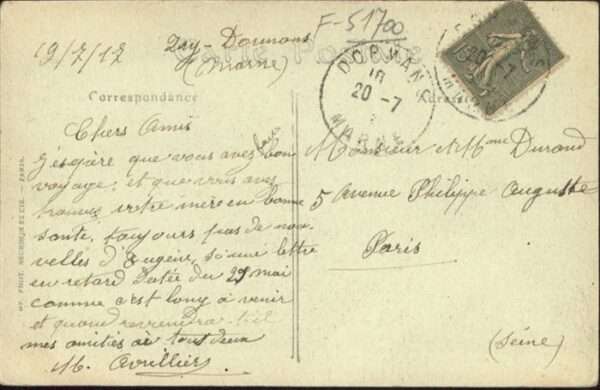 F-51700
19/7/17 Dormans
(Marne)
Carte Postale
Correspondance
Adresse
DORMANS
20 -7
MARNE
20 -7
Chers Amis
J'espère que vous avez bon
voyage, et que vous avez
trouvé votre mère en bonne
santé, toujours pas de nou-
velles d'Eugène, si une lettre
en retard datée du 29 mai
comme c'est long à venir
et quand reviendra-t-il
mes amitiés à tous deux
M. Avrillier
Monsieur et Mme Durand
5 Avenue Philippe Auguste
Paris
(Seine)
ND. PHOT. NEURDEIN ET CIE. - PARIS.